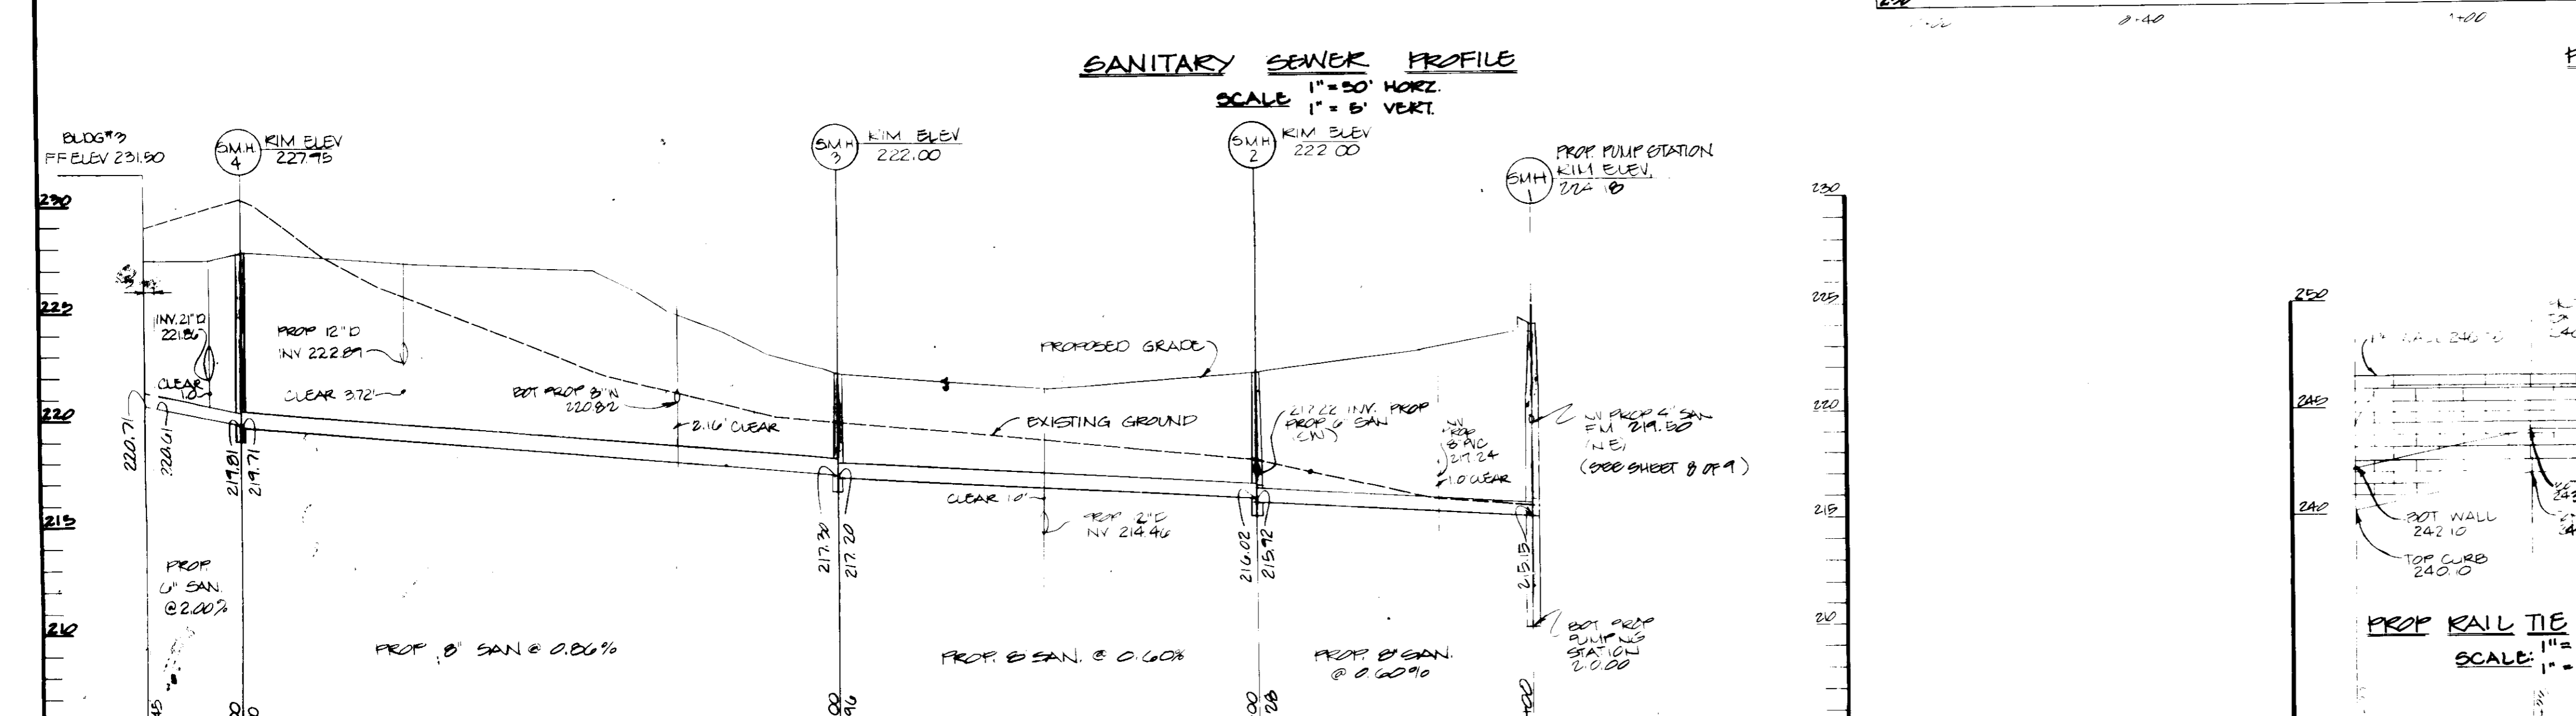 8+40
1+00
SANITARY SEWER PROFILE
SCALE 1"=50' HORZ.
1"= 5' VERT.
BLDG #3
FF ELEV 231.50
SMH 4
RIM ELEV
227.95
SMH 3
RIM ELEV
222.00
SMH 2
RIM ELEV
222.00
SMH 1
PROP. PUMP STATION
RIM ELEV.
224.18
230
225
220
215
210
230
225
220
215
210
INV. 21" D
221.86
CLEAR
1.0
PROP 12" D
INV 222.89
CLEAR 3.72'
BOT PROP 8" W
220.82
2.16' CLEAR
PROPOSED GRADE
EXISTING GROUND
217.22 INV. PROP
PROP 6" SAN
(SW)
INV
PROP
8" PVC
217.24
1.0 CLEAR
INV PROP 4" SAN
FM 219.50
(NE)
(SEE SHEET 8 OF 9)
CLEAR 1.0'
PROP 12" D
INV 214.46
220.71
220.61
219.81
219.71
217.30
217.20
216.02
215.92
215.15
PROP.
6" SAN.
@ 2.00%
PROP. 8" SAN @ 0.86%
PROP. 8" SAN. @ 0.60%
PROP. 8" SAN.
@ 0.60%
BOT PROP
PUMPING
STATION
210.00
45
00
96
00
28
+00
250
245
240
BOT WALL
242.10
TOP CURB
240.10
PROP RAIL TIE
SCALE: 1"=
1"=